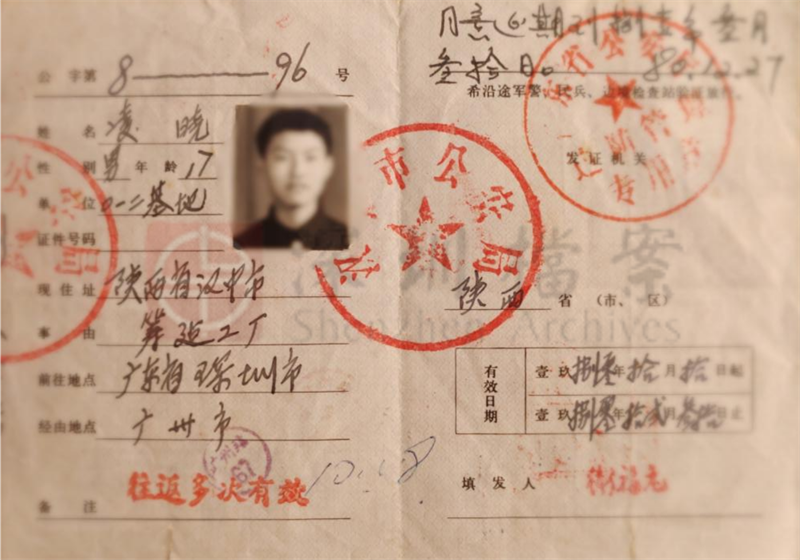 公字第 8——96 号
姓名 凌晓
性别 男 年龄 17
单位 0一二基地
证件号码
现住址 陕西省汉中市
事由 筹建工厂
前往地点 广东省深圳市
经由地点 广州市
往返多次有效
10.18
备注
市公安局
同意延期到捌壹年叁月
叁拾日。 80.12.27
希沿途军警、民兵、边防检查站验证放行。
发证机关
省公安
边防管理
专用章
陕西 省(市、区)
深圳檔案
Shenzhen Archives
有效日期
壹玖捌零年拾月拾日起
壹玖捌零年拾贰月叁拾日止
填发人